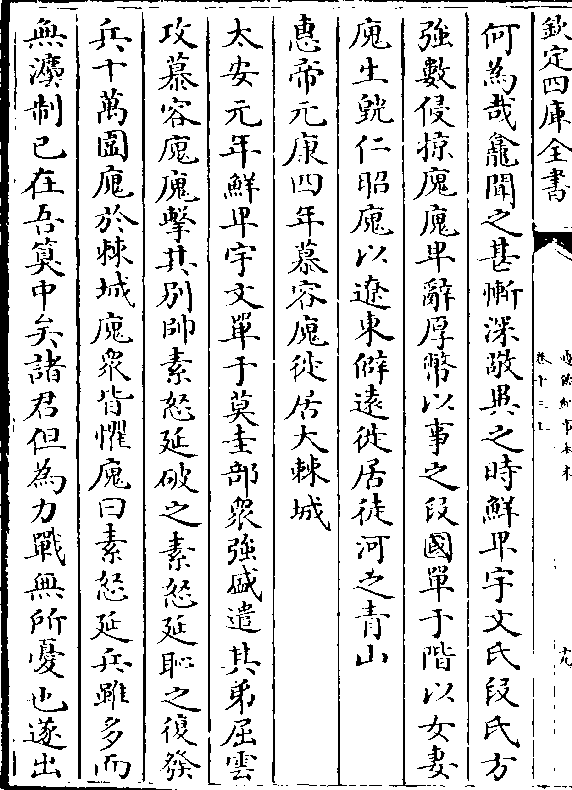 欽定四庫全書
通鑑紀事本末
卷十三上
十九
何為哉龕聞之甚慚深敬異之時鮮卑宇文氏段氏方
強數侵掠廆廆卑辭厚幣以事之段國單于階以女妻
廆生皝仁昭廆以遼東僻遠徙居徒河之青山
惠帝元康四年慕容廆徙居大棘城
太安元年鮮卑宇文單于莫圭部衆強盛遣其弟屈雲
攻慕容廆廆擊其别帥素怒延破之素怒延恥之復發
兵十萬圍廆於棘城廆衆皆懼廆曰素怒延兵雖多而
無灋制已在吾算中矣諸君但為力戰無所憂也遂出